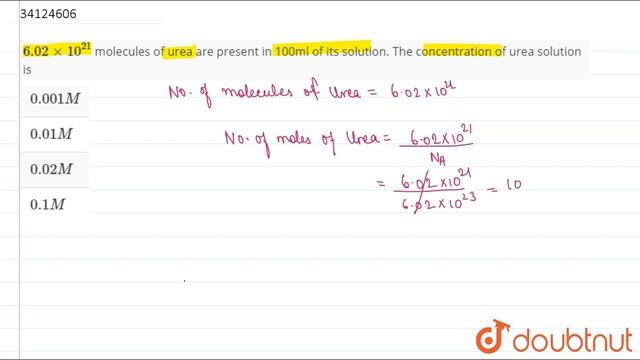 34124606
6.02 × 10²¹ molecules of urea are present in 100ml of its solution. The concentration of urea solution
is
0.001M
0.01M
0.02M
0.1M
No. of molecules of Urea = 6.02×10²¹
No. of moles of Urea = 6.02×10²¹
N_A
= 6.02×10²¹
6.02×10²³ = 10
doubtnut